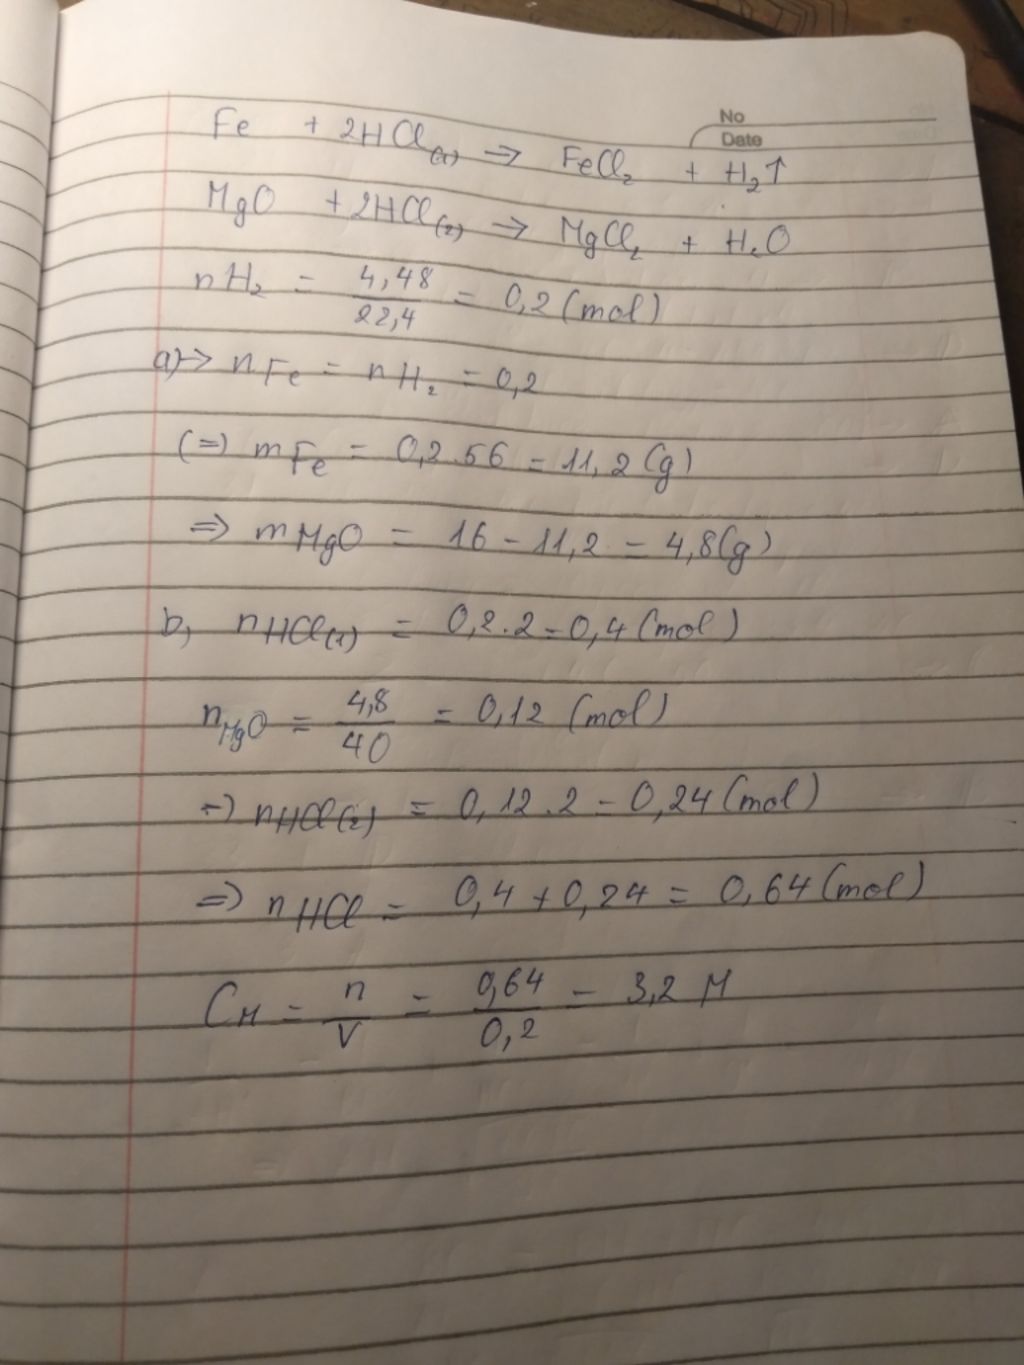 No
Date
Fe + 2HCl(1) => FeCl₂ + H₂↑
MgO + 2HCl(2) => MgCl₂ + H₂O
nH₂ = 4,48/22,4 = 0,2 (mol)
a) -> nFe = nH₂ = 0,2
(=) mFe = 0,2.56 = 11,2 (g)
=> mMgO = 16 - 11,2 = 4,8(g)
b, nHCl(1) = 0,2.2 = 0,4 (mol)
nMgO = 4,8/40 = 0,12 (mol)
=) nHCl(2) = 0,12.2 = 0,24 (mol)
=) nHCl = 0,4 + 0,24 = 0,64 (mol)
CM = n/V = 0,64/0,2 = 3,2 M